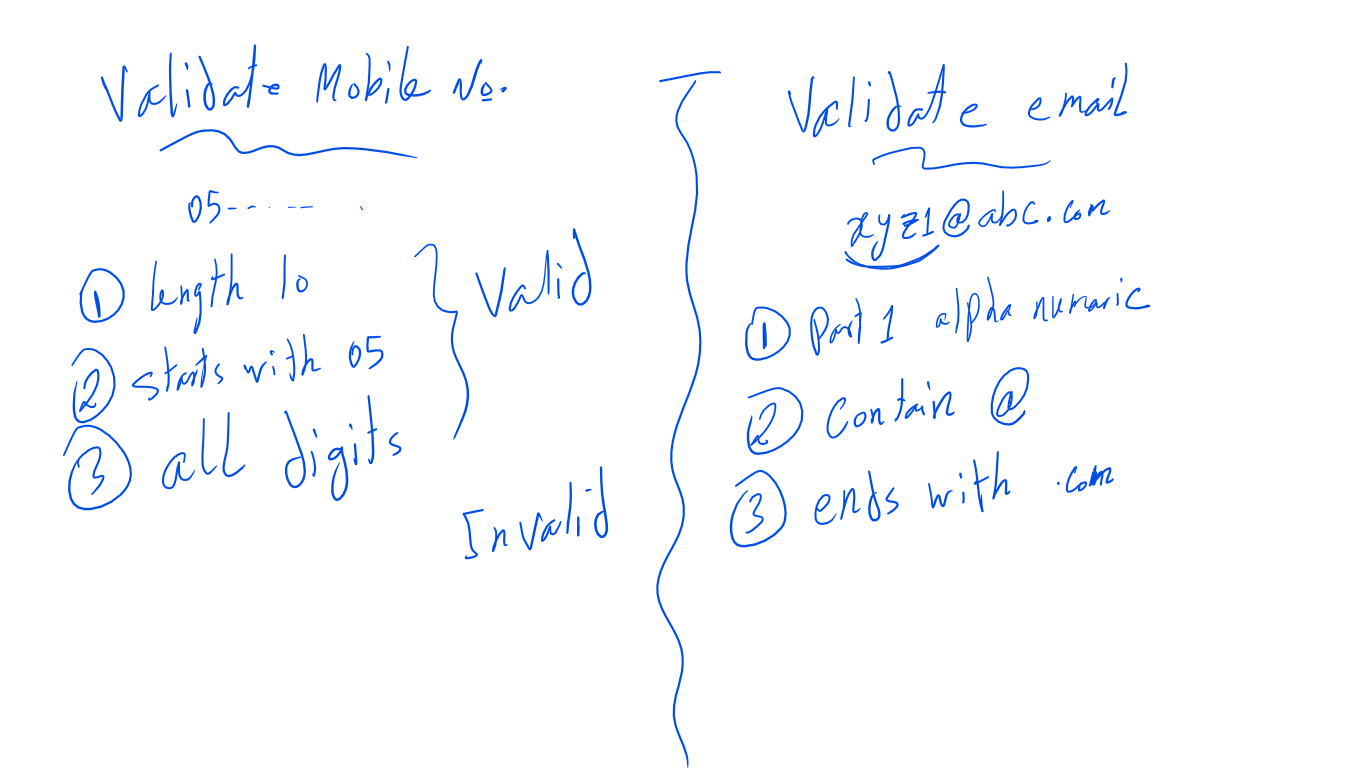 Validate Mobile No.
05--------
① length 10
② starts with 05
③ all digits
Valid
Invalid
Validate email
xyz1@abc.com
① Part 1 alpha numaric
② Contain @
③ ends with .com